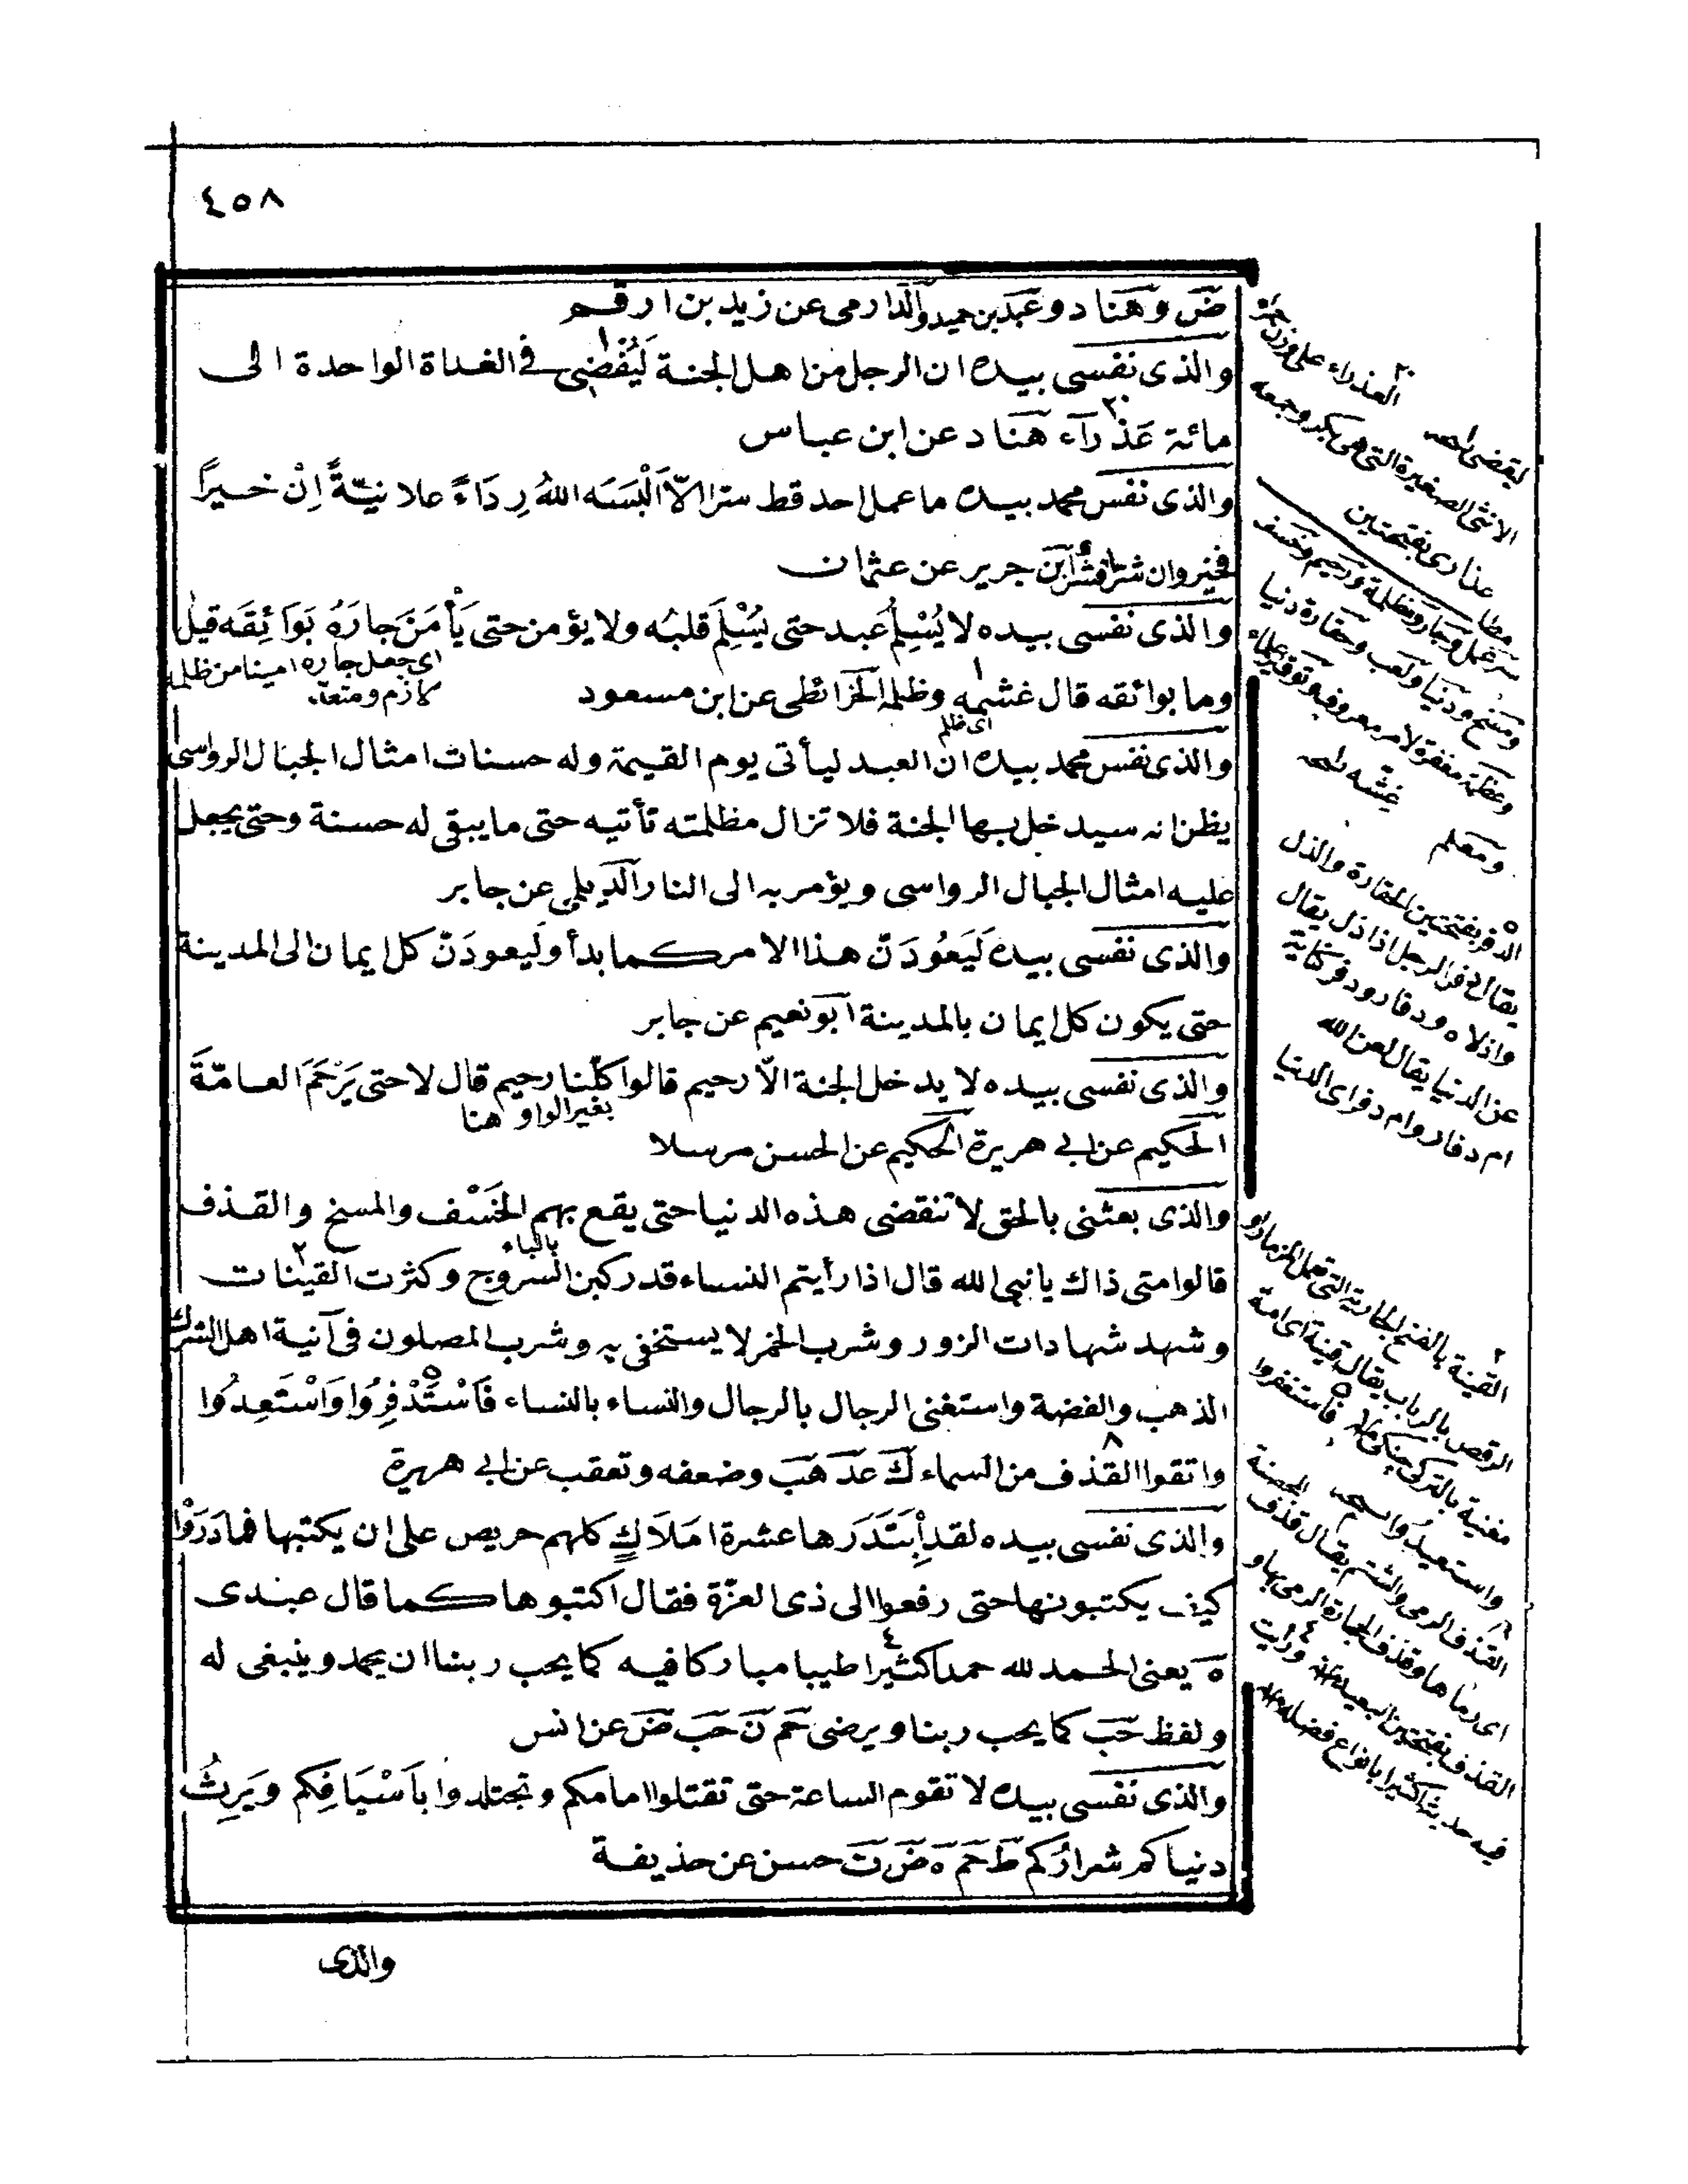 ٤٥٨
ض وهناد وعبد بن حميد والدارمى عن زيد بن ارقم
والذى نفسى بيده ان الرجل من اهل الجنة لَيُفْضِى فى الغداة الواحدة الى
مائة عَذْرَآء هناد عن ابن عباس
والذى نفس محمد بيده ما عمل احد قط سترا الاّ اَلْبَسَه اللهُ رِدَاءً علانيّةً اِنْ خيرًا
فخير وان شرا فشر ابن جرير عن عثمان
والذى نفسى بيده لا يُسْلِمُ عبد حتى يُسْلِمَ قلبُه ولا يؤمن حتى يَأْمَنَ جارُهُ بَوَائِقَه قيل
اى جعل جاره امينا من ظلمه
وما بوائقه قال غشمه وظلمه الخرائطى عن ابن مسعود
كلازم ومتعد
اى ظلم
والذى نفس محمد بيده ان العبد ليأتى يوم القيمة وله حسنات امثال الجبال الرواسى
يظن انه سيدخل بها الجنة فلا تزال مظلمته تأتيه حتى ما يبقى له حسنة وحتى يجعل
عليه امثال الجبال الرواسى ويؤمر به الى النار الديلمى عن جابر
والذى نفسى بيده لَيَعُودَنّ هذا الامر كما بدأ ولَيعودَنّ كل ايمان الى المدينة
حتى يكون كل ايمان بالمدينة ابو نعيم عن جابر
والذى نفسى بيده لا يدخل الجنة الاّ رحيم قالوا كلّنا رحيم قال لا حتى يَرْحَمَ العامّةَ
بغير الواو هنا
الحكيم عن ابى هريرة الحكيم عن الحسن مرسلا
والذى بعثنى بالحق لا تنقضى هذه الدنيا حتى يقع بهم الخَسْف والمسخ والقذف
بالباء
قالوا متى ذاك يا نبى الله قال اذا رأيتم النساء قد ركبن السروج وكثرت القينات
وشهد شهادات الزور وشرب الخمر لا يستخفى به وشرب المصلون فى آنية اهل الشرك
الذهب والفضة واستغنى الرجال بالرجال والنساء بالنساء فَاسْتَدْفِرُوا وَاسْتَعِدُوا
واتقوا القذف من السماء ك عد هب وضعفه وتعقب عن ابى هريرة
والذى نفسى بيده لقد اِبْتَدَرَها عشرة امَلَاكٍ كلهم حريص على ان يكتبها فما دَرَوْا
كيف يكتبونها حتى رفعوا الى ذى العزّة فقال اكتبوها كما قال عبدى
ه يعنى الحمد لله حمدا كثيرا طيبا مباركا فيه كما يحب ربنا ان يحمد وينبغى له
ولفظ حب كما يحب ربنا ويرضى حم ن حب ض عن انس
والذى نفسى بيده لا تقوم الساعة حتى تقتلوا امامكم وتجتلدوا بِاَسْيَافِكم ويَرِثُ
دنياكم شرارُكم ط حم ه ض ت حسن عن حذيفة
والذى
العذراء على وزن
الانثى الصغيرة التى هى بكر وجمعه
عذارى بفتحتين
ومعلم
الدفر بفتحتين الحقارة والذل
يقال دفر الرجل اذا ذل يقال
عن الدنيا يقال لعن الله
ام دفار وام دفر اى الدنيا
القينة بالفتح الجارية التى
الرقص بالرباب يقال قينة اى امة
مغنية بالتركى
القذف الرمى والشتم يقال قذف
اى رماها وقذف الحجارة الرمى بها و
القذف بفتحتين البعيد ورأيت
فيه حديثا كثيرا بانواع فضله